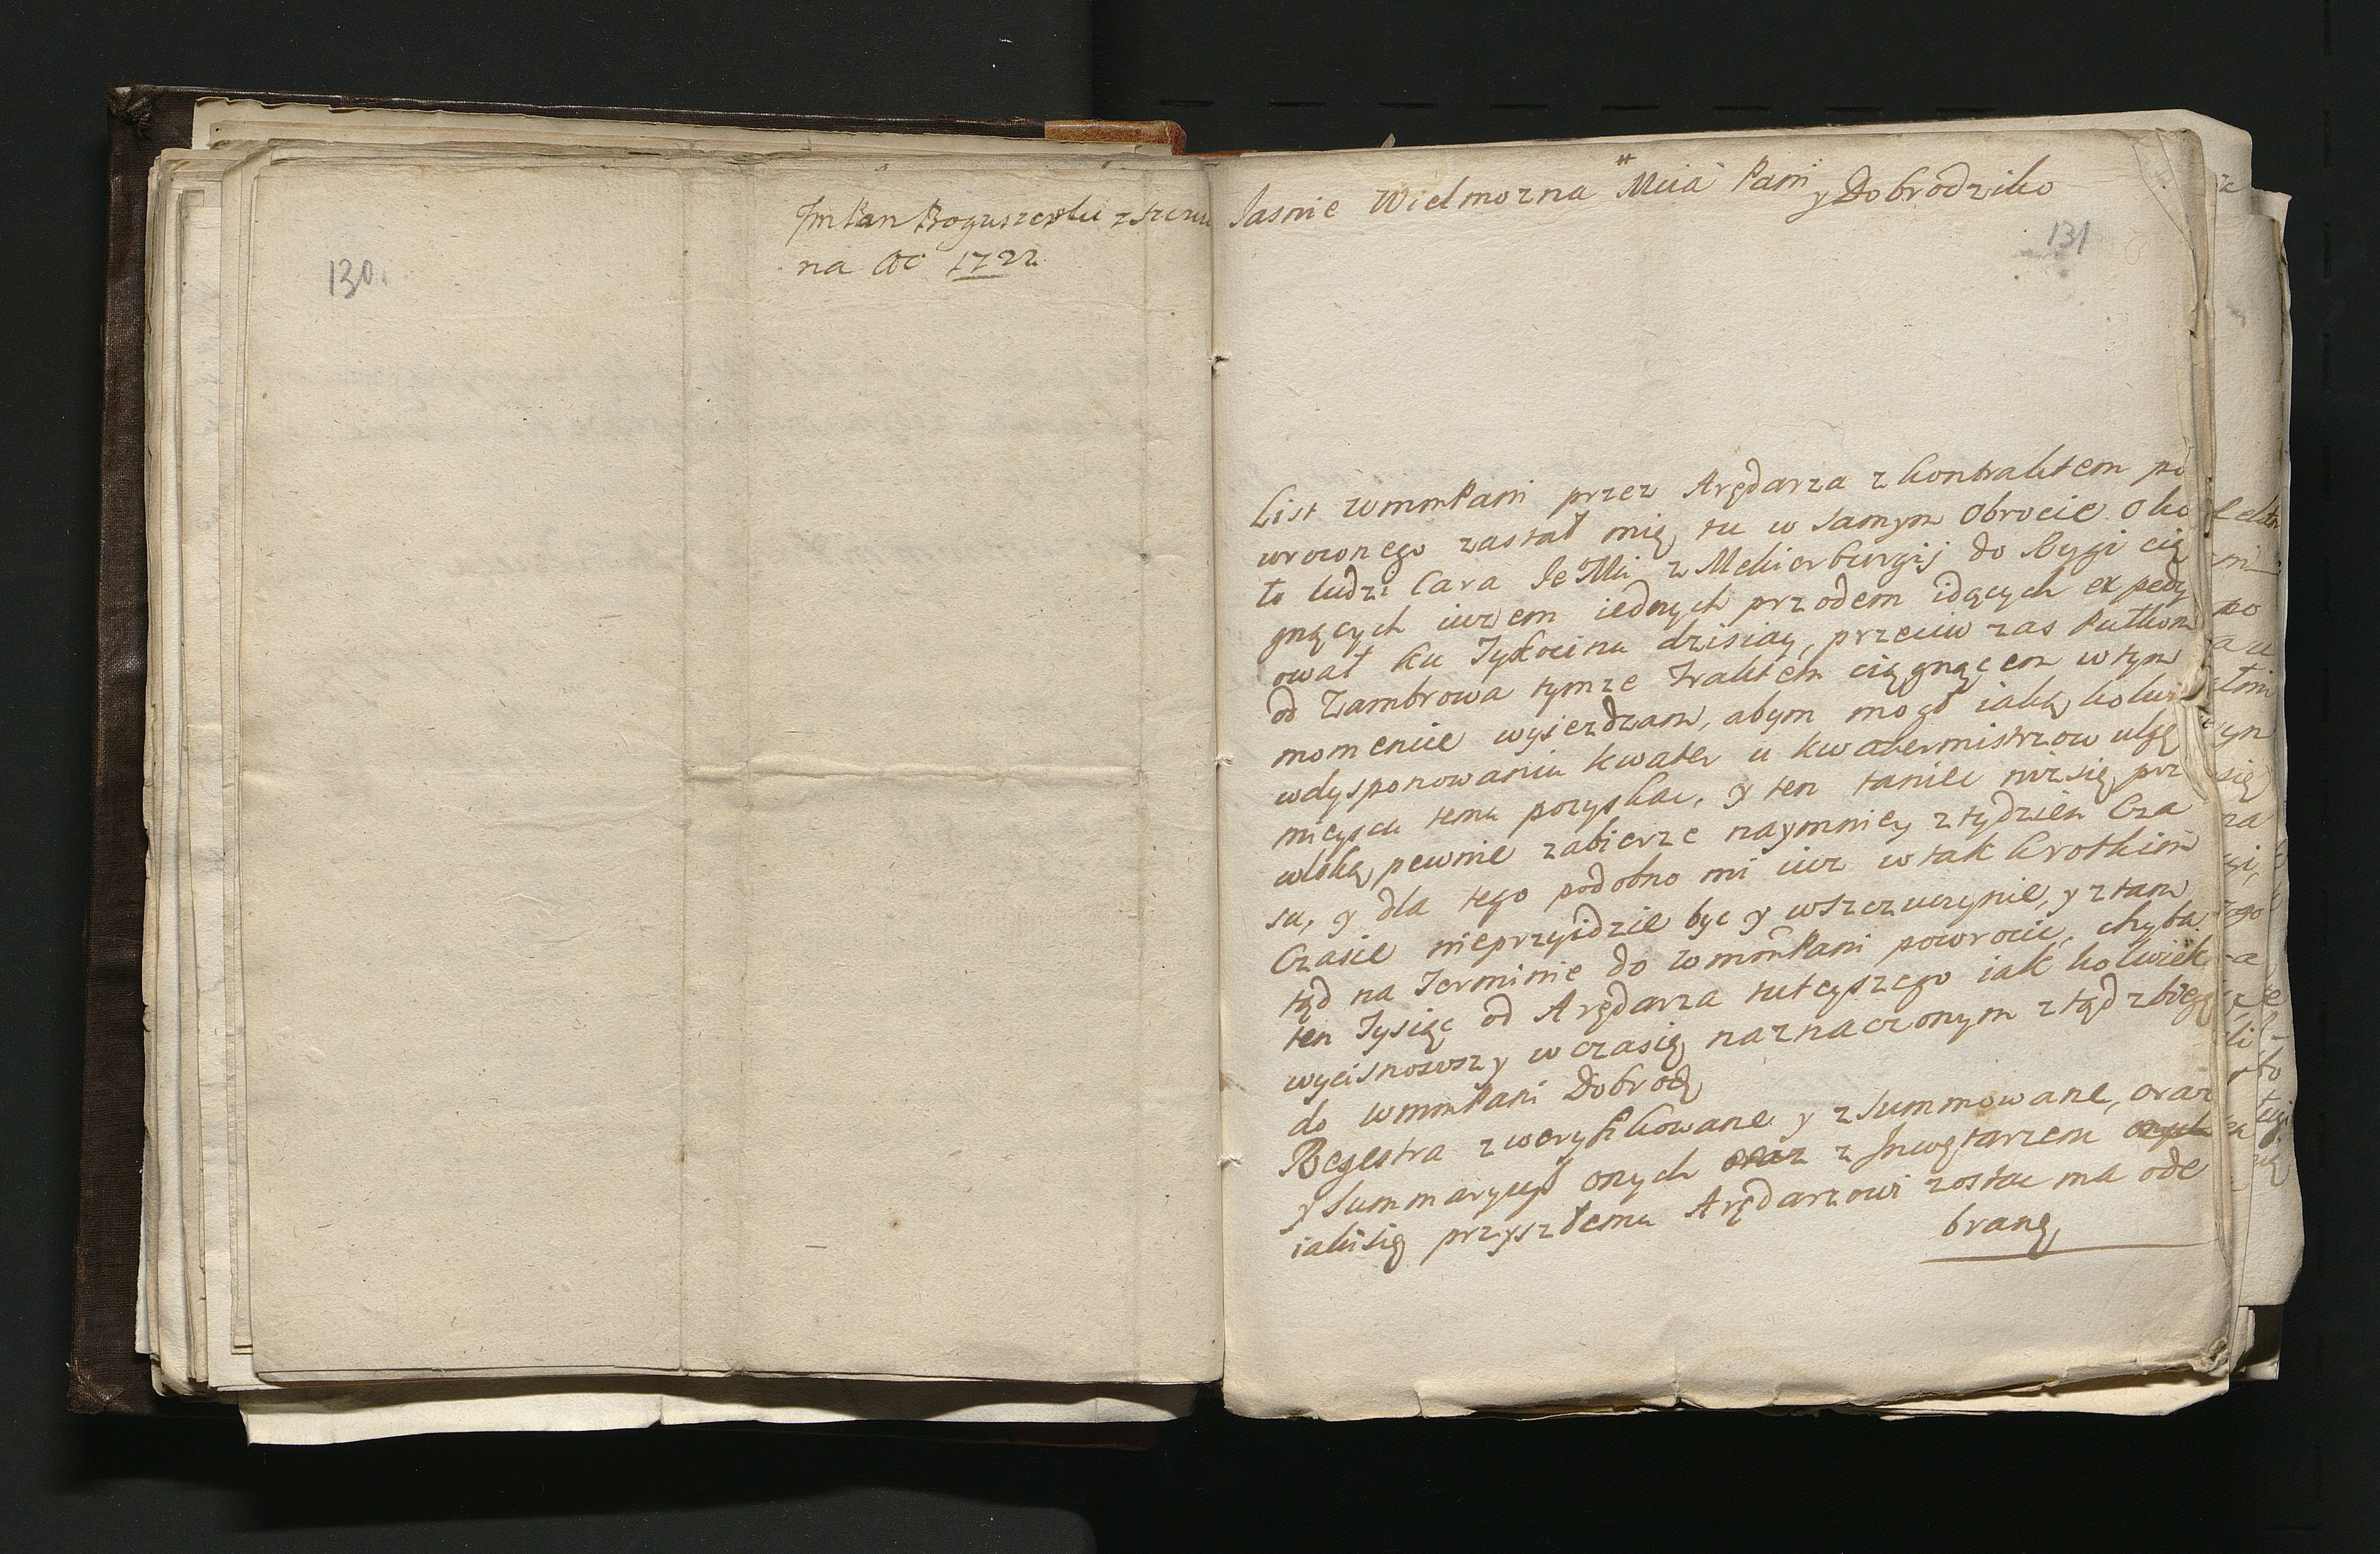 Jm Pan Boguszewski z Szczu
na Ao 1722
130.
Jasnie Wielmozna Mcia Pani
y Dobrodziko
131
List WmmPani przez Arędarza z kontraktem po
wroconego zastał mię tu w samym Obrocie. Oko
ło ludzi Cara Je Mci z Mekierburgij do Rygi cią
gnących iuzem iednych przodem idących expedy
ował ku Tykocinu dzisiay, przeciw zas Pułkom
od Zambrowa tymze Traktem ciągnącem w tym
momencie wyiezdzam, abym mogł iakąkolwi
w dysponowaniu kwater u kwatermistrzow ulgę
mieyscu temu pozyskac, y ten taniec
wloką, pewnie zabierze naymniey z tydzien Cza
su, y dla tego podobno mi iuz w tak krotkim
Czasie nieprzyidzie byc y w Szczuczynie, y z tam
tąd na Terminie do WmmPani powrocic, chyba
ten Tysiąc od Arędarza tuteyszego iak kolwiek
wycisnowszy w czasię naznaczonym ztąd zbiegę
do WmmPani Dobrodz
Regestra zweryfikowane y zsummowane, oraz
y Summaryusz onych z Inwętarzem
iaki się przyszłemu Arędarzowi zostac ma ode
braną,